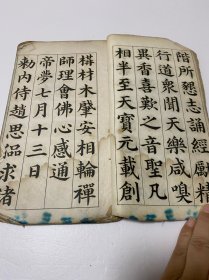 階所懇志誦經勵精
行道衆聞天樂咸嗅
異香喜歎之音聖凡
相半至天寶元載創
構材木肇安相輪禪
師理會佛心感通
帝夢七月十三日
勅内侍趙思偘求諸